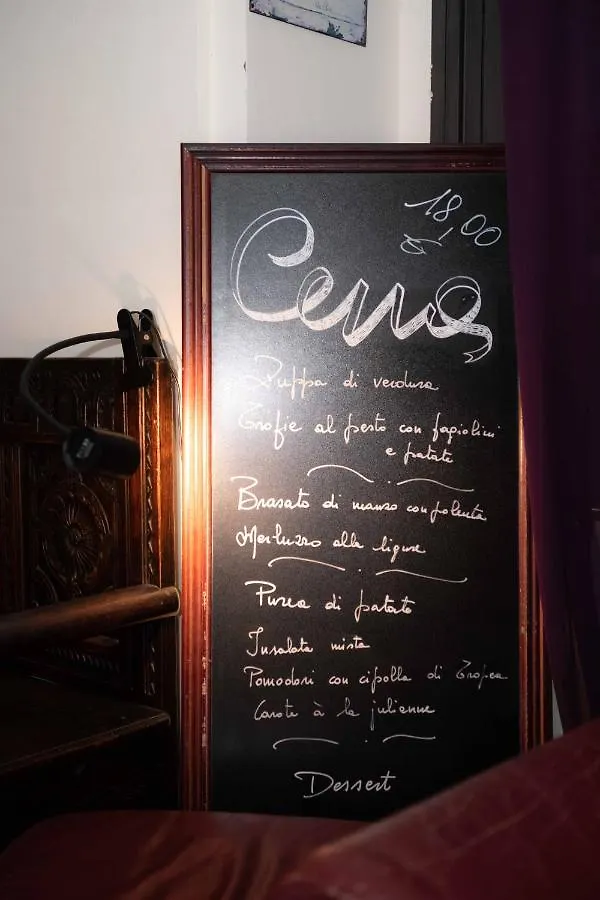 18,00
€
Cena
Zuppa di verdura
Trofie al pesto con fagiolini
e patate
Brasato di manzo con polenta
Merluzzo alla ligure
Purea di patate
Insalata mista
Pomodori con cipolla di Tropea
Carote à la julienne
Dessert